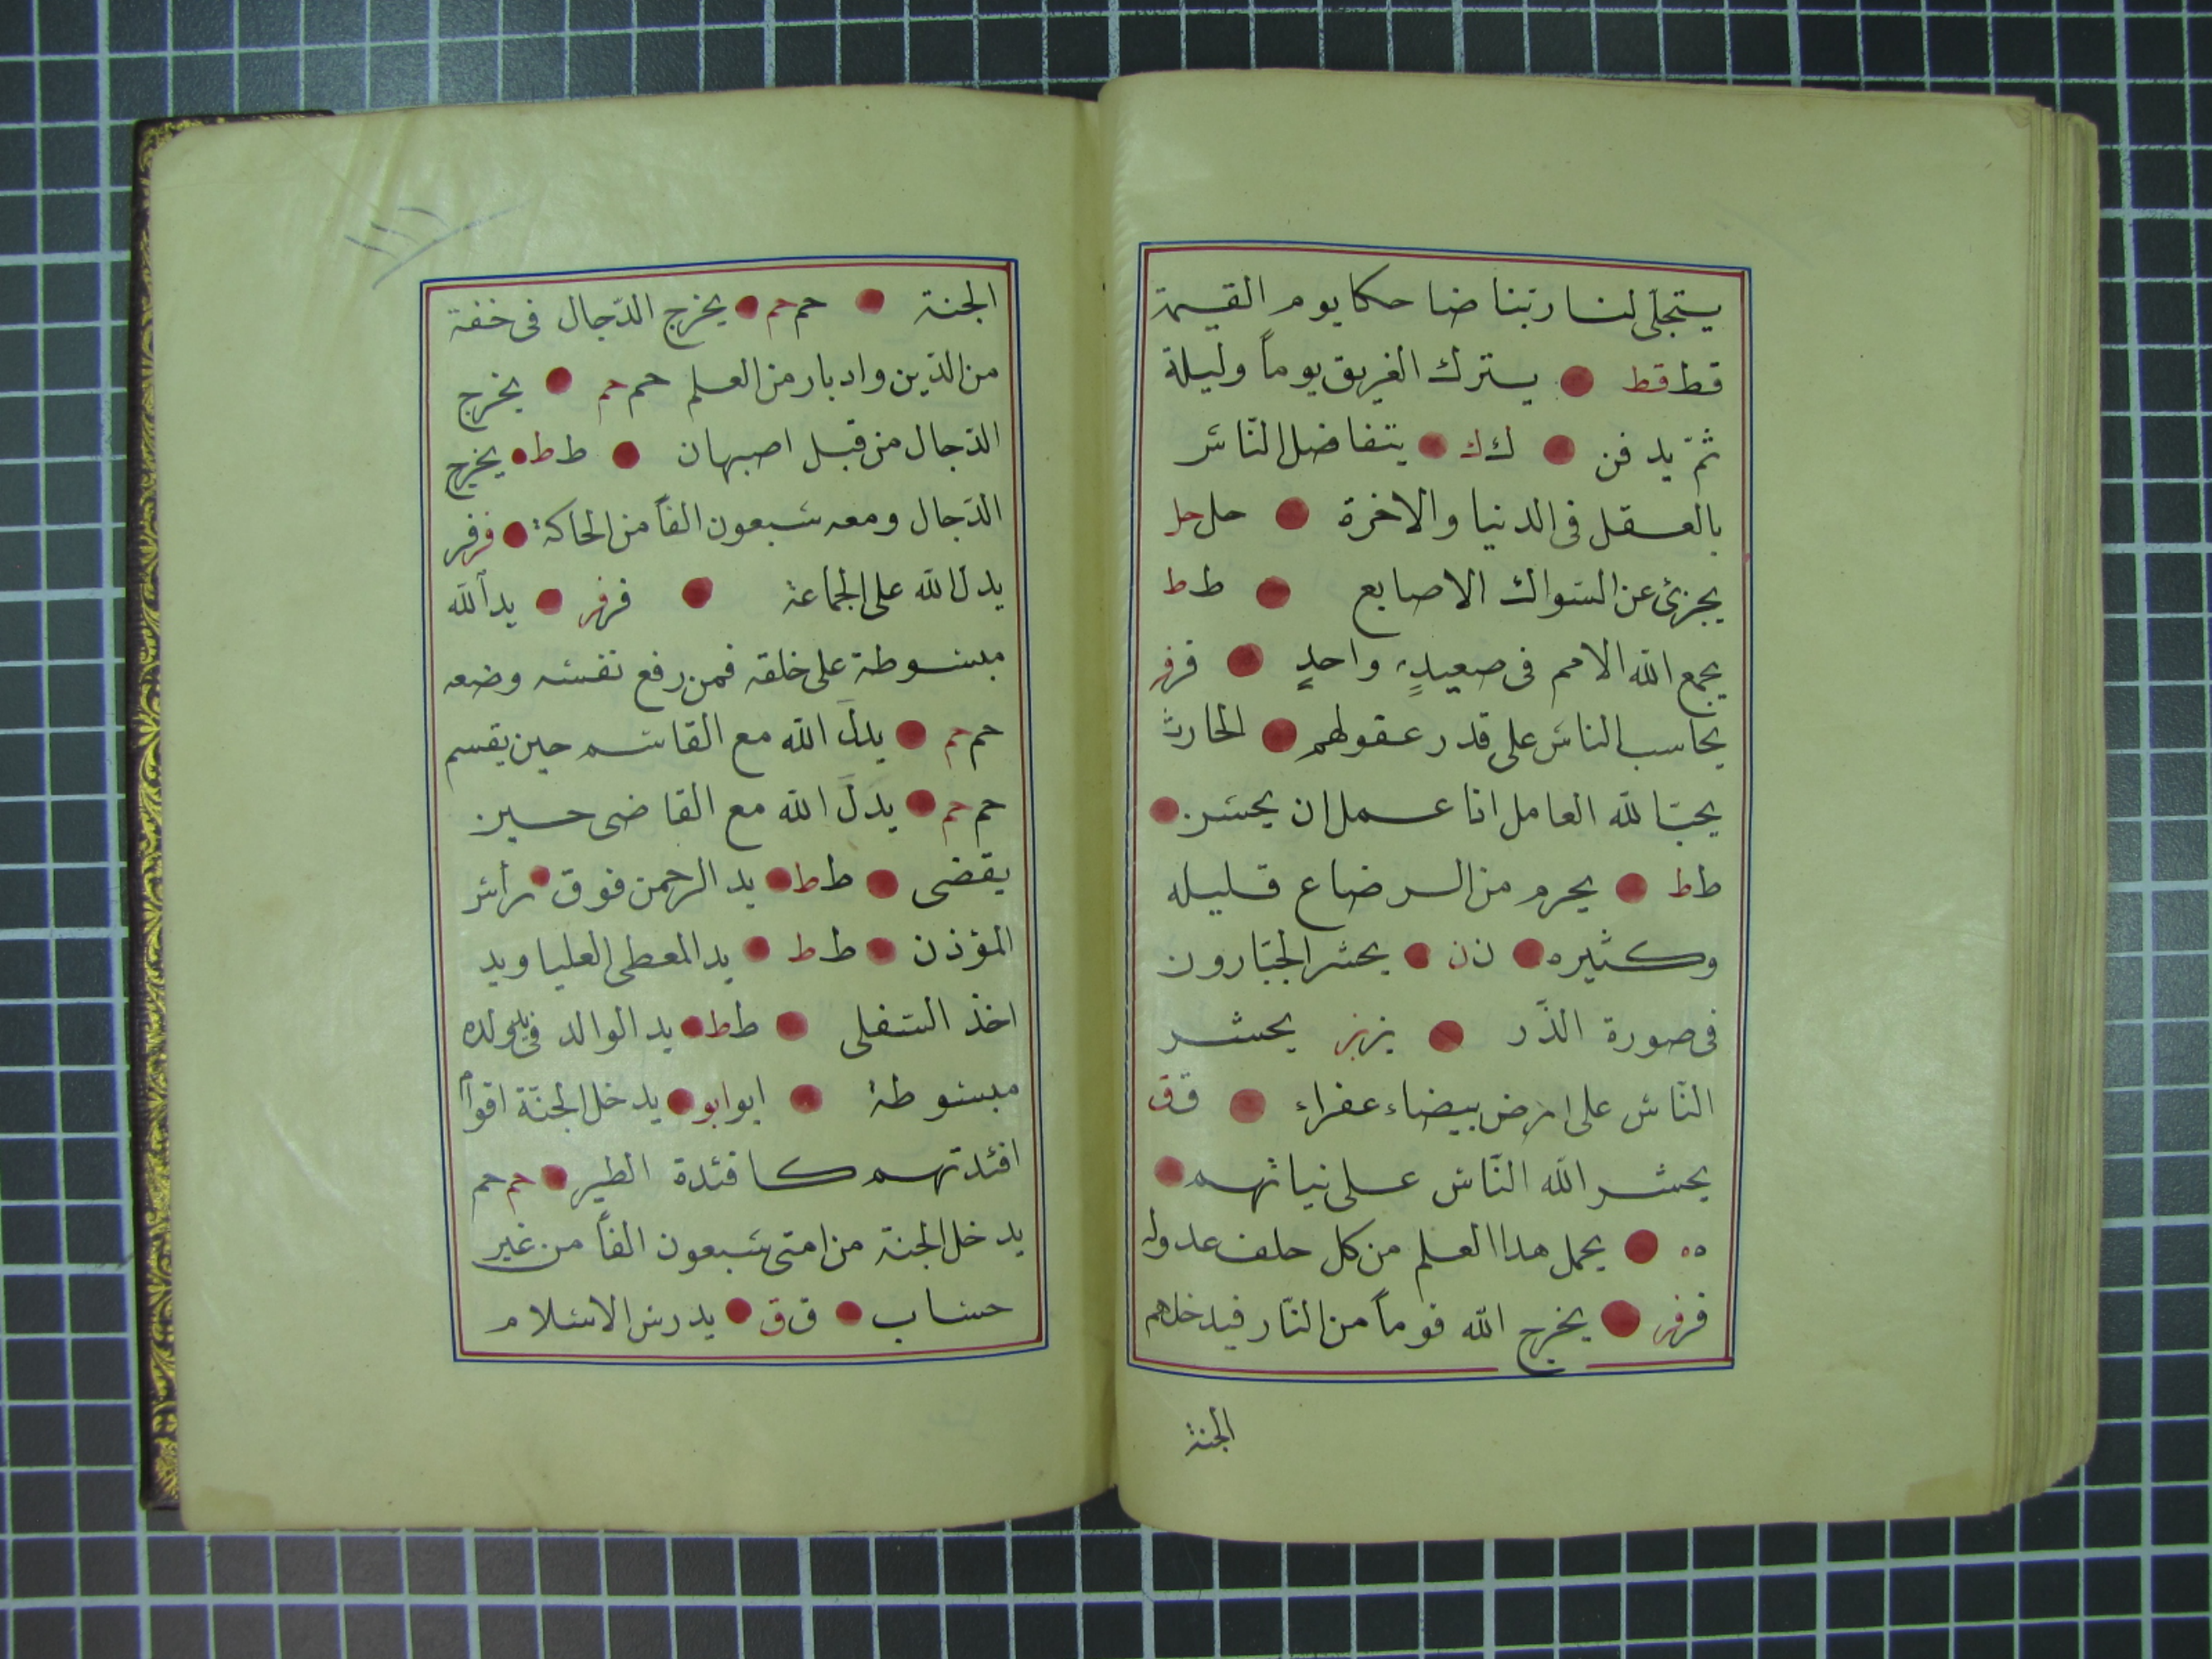 يستجلّى لنا ربّنا ضاحكا يوم القيمة
قط قط ● يسترك الغريق يوماً وليلة
ثمّ يدفن ● ك ك ● يتفاضل النّاس
بالعقل فى الدنيا والاخرة ● حل حل
يجزئ عن السواك الاصابع ● ط ط
يجمع الله الامم فى صعيدٍ واحدٍ ● فر فر
يحاسب الناس على قدر عقولهم ● الحارث
يحبّ الله العامل اذا عمل ان يحسن ●
ط ط ● يحرم من الرضاع قليله
وكثيره ● ن ن ● يحشر الجبّارون
فى صورة الذّر ● بز بز يحشر
النّاس على ارض بيضاء عفراء ● ق ق
يحشر الله النّاس على نياتهم ●
ه ه ● يحمل هدا العلم من كل حلف عدوله
فر فر ● يخرج الله قوماً من النّار فيدخلهم
الجنة
١١٦
الجنة ● حم حم ● يخرج الدّجال فى خفة
من الدّين وادبار من العلم حم حم ● يخرج
الدّجال من قبل اصبهان ● ط ط ● يخرج
الدّجال ومعه سبعون الفاً من الحاكة ● فر فر
يدل الله على الجماعة ● فر فر ● يد الله
مبسوطة على خلقه فمن رفع نفسه وضعه
حم حم ● يدلَ الله مع القاسم حين يقسم
حم حم ● يدلَ الله مع القاضى حين
يقضى ● ط ط ● يد الرحمن فوق ● رأس
المؤذن ● ط ط ● يد المعطى العليا ويد
اخذ السفلى ● ط ط ● يد الوالد فى يد ولده
مبسوطة ● ابو ابو ● يدخل الجنّة اقوام
افئدتهم كافئدة الطير ● حم حم
يدخل الجنة من امتى سبعون الفاً من غير
حساب ● ق ق ● يدرس الاسلام